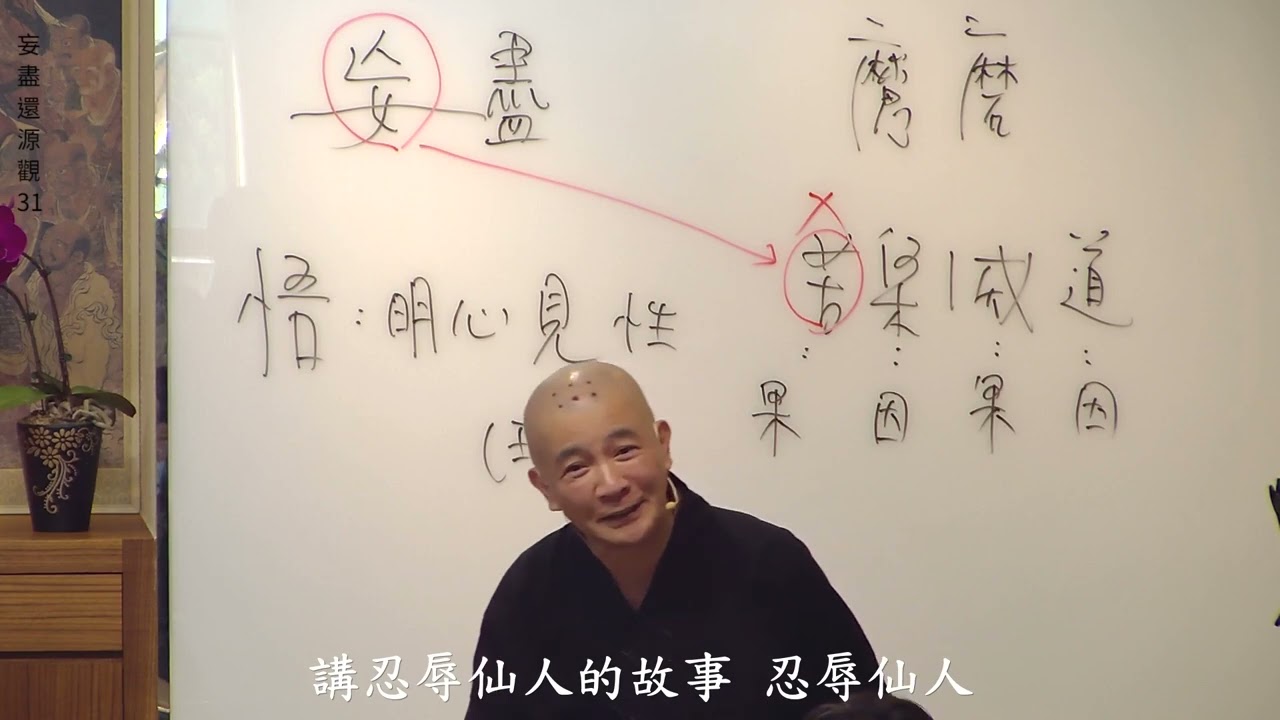 妄盡還源觀
31
妄盡
悟：明心見性
苦集滅道
果因果因
講忍辱仙人的故事 忍辱仙人